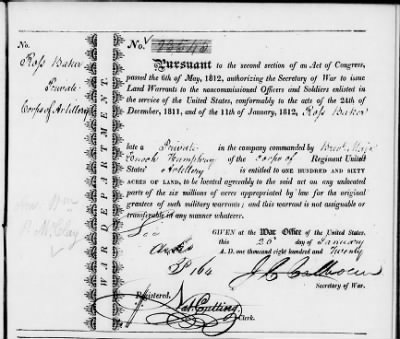 No.
Ross Baker
Private
Corps of Artillery
WAR DEPARTMENT.
No.
Pursuant to the second section of an Act of Congress,
passed the 6th of May, 1812, authorizing the Secretary of War to issue
Land Warrants to the noncommissioned Officers and Soldiers enlisted
in the service of the United States, conformably to the acts of the 24th of
December, 1811, and of the 11th of January, 1812, Ross Baker
late a Private in the company commanded by
Enoch Humphrey of the Corps of Regiment United
States' Artillery is entitled to ONE HUNDRED AND SIXTY
ACRES OF LAND, to be located agreeably to the said act on any unlocated
parts of the six millions of acres appropriated by law for the original
grantees of such military warrants; and this warrant is not assignable or
transferable in any manner whatever.
GIVEN at the War Office of the United States,
this 20th day of January
A. D. one thousand eight hundred and Twenty
164
J C Calhoun
Secretary of War.
Registered,
Nat Cutting
Clerk.